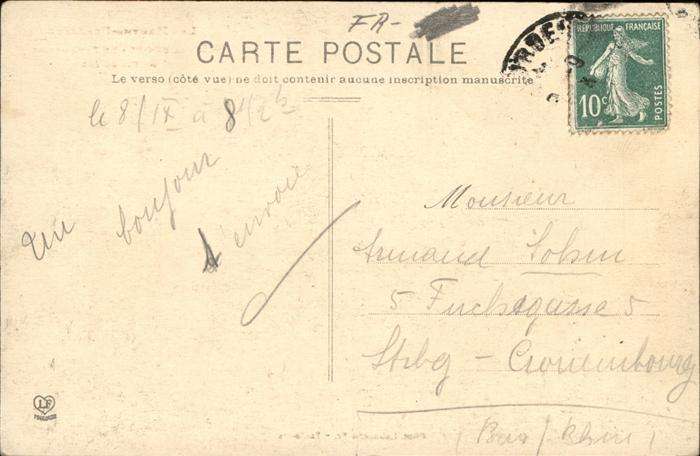 FR-
CARTE POSTALE
Le verso (côté vue) ne doit contenir aucune inscription manuscrite
RÉPUBLIQUE FRANÇAISE
10c
POSTES
le 8/IX à 8 1/2 h
Un bonjour
d'envoie
Monsieur
Armand
5 Fuchsgasse 5
Stsbg - Cronenbourg
(Bas/Rhin)
LF
TOULOUSE